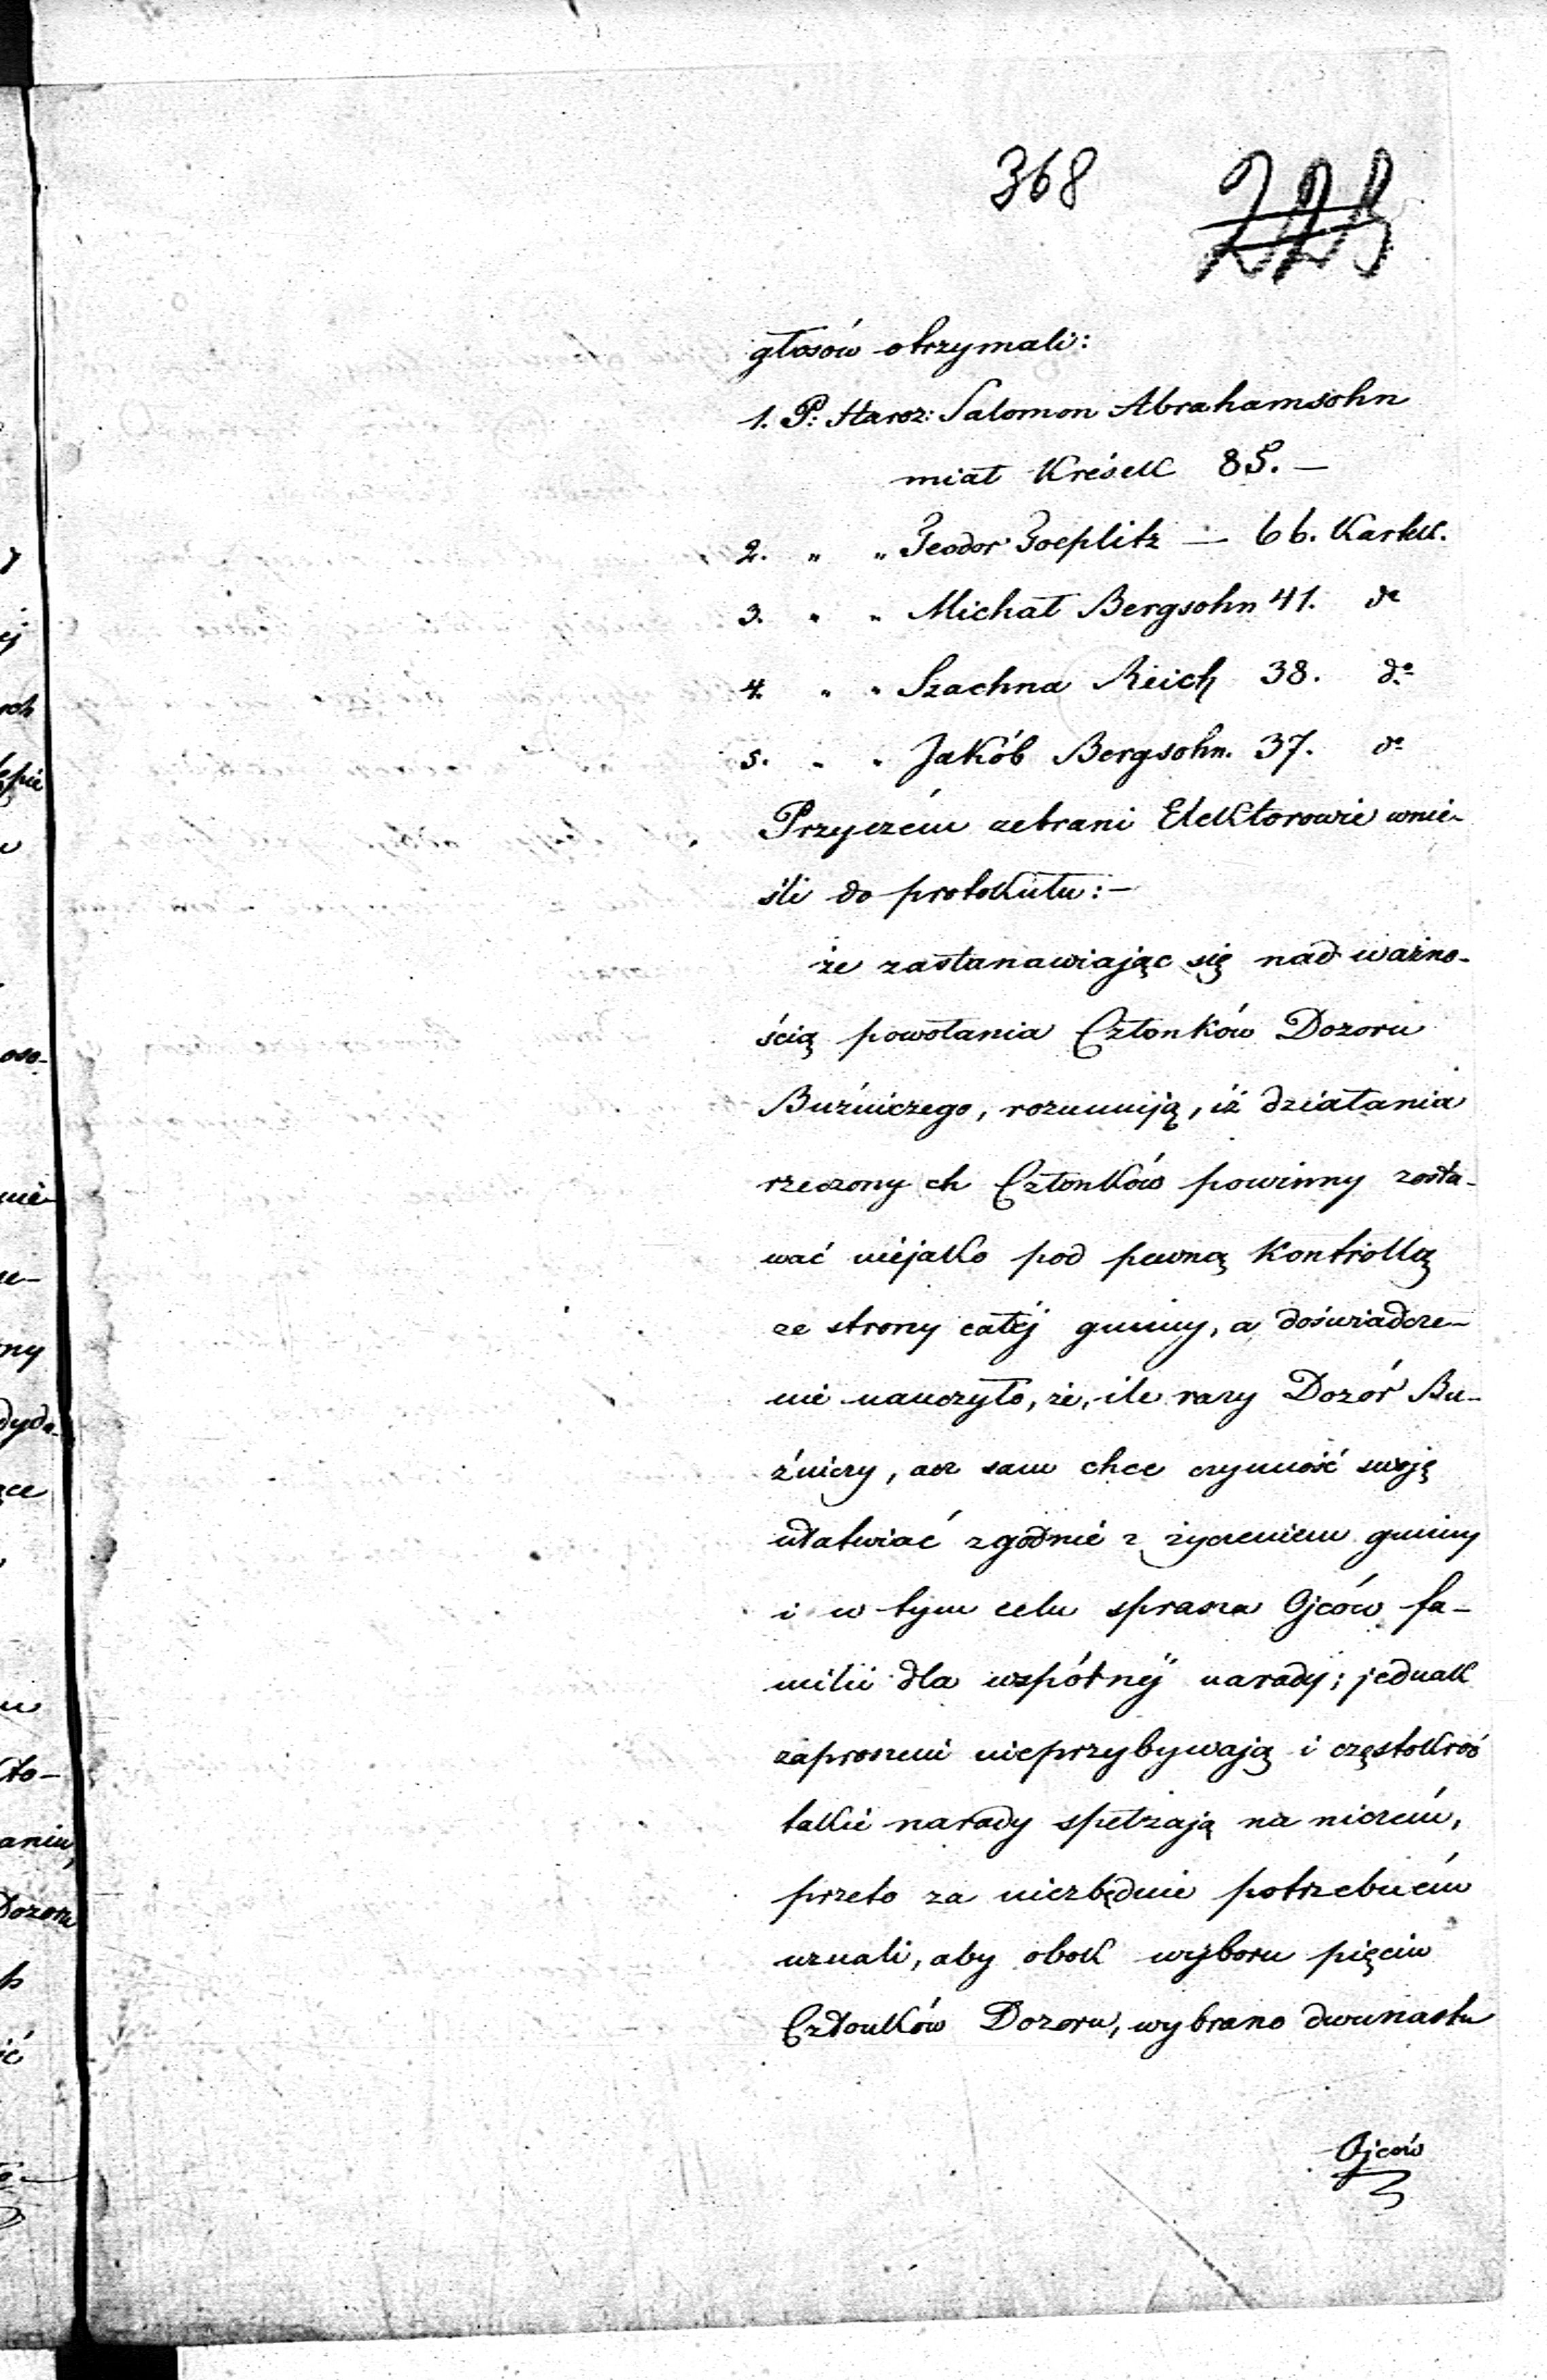 368 223
głosów otrzymali:
1. P: Staroz: Salomon Abrahamsohn
miał Krések 85. —
2. " " Teodor Toeplitz — 66. Kartek.
3. " " Michał Bergsohn 41. do
4. " " Szachna Reich 38. do
5. " " Jakób Bergsohn. 37. do
Przyczém zebrani Elektorowie wnie-
śli do protokułu: —
że zastanawiając się nad ważno-
ścią powołania Członków Dozoru
Buźniczego, rozumiją, iż działania
rzeczonych Członków powinny zosta-
wać niejako pod pewną Kontrollą
ze strony całéj gminy, a doświadcze-
nie nauczyło, że, ile razy Dozór Bu-
źniczy, acz sam chce czynność swoję
ułatwiać zgodnie z życzeniem gminy
i w tym celu sprasza Ojców fa-
milii dla wspólnéj narady; jednak
zaproszeni nieprzybywają i częstokroć
takie narady spełzają na niczém,
przeto za niezbędnie potrzebném
uznali, aby obok wyboru pięciu
Członków Dozoru, wybrano dwunastu
Ojców